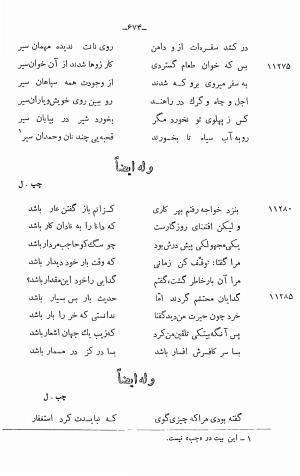 -۶۷۴-
در کشد سفره‌ات از و دامن روی نانت ندیده مهمان سیر
۱۱۲۷۵ بس که خوان طعام گستردی کرزوها شدند از آن خوان سیر
به سفر میروی برو که شدند از وجودت همه سپاهان سیر
اجل و چاه و گرگ در راهند رو ببین روی خویش و یاران سیر
کس ز پهلوی تو نخورد مگر بخورد شیر در بیابان سیر
رو به آب سیاه تا بخورند قحبه‌یی چند نان وحمدان سیر۱
وله ایضاً
چپ . ل
۱۱۲۸۰ بنزد خواجه رفتم بهر کاری کز انم باز گفتن عار باشد
ولیکن اقتضای روزگارست که دانا را به نادان کار باشد
یکی مجهولکی پیش درش بود چو سگ کو حاجب مردار باشد
مرا گفتا: توقف کن زمانی که وقت بار خود دیدار باشد
مرا آن بار خاطر گشت، گفتم گدایی را خود این مقدار باشد؟
۱۱۲۸۵ گدایان محتشم گردند امّا حدیث بار بی بسیار باشد
خرد چون حیرت من دید گفتا ندانستی که خر را بار باشد
پس آنگه بیتکی تلقین من کرد که زیب یک جهان اشعار باشد
بسا سر کافرش افسار باشد بسا در کز در مسمار باشد
وله ایضاً
چپ . ل
گفته بودی مرا که چیزی گوی که نیابدت کرد استغفار
۱ - این بیت در «چپ» نیست.